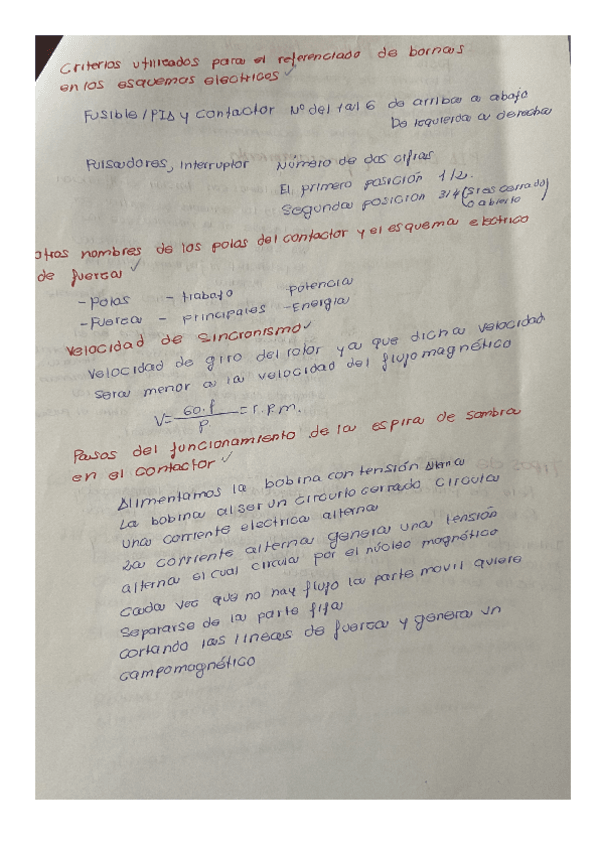 Criterios utilizados para el referenciado de bornas
en los esquemas electricos ✓
Fusible/PIA y contactor Nº del 1 al 6 de arriba a abajo
De izquierda a derecha
Pulsadores, interruptor Número de dos cifras
El primero posición 1/2.
Segunda posicion 3/4 (si es cerrado
o abierto)
otros nombres de los polos del contactor y el esquema electrico
de fuerza ✓
- Polos - trabajo potencia
- Fuerza - principales - Energia
Velocidad de sincronismo ✓
Velocidad de giro del rotor ya que dicha velocidad
sera menor a la velocidad del flujo magnético
V= 60.f / P = r.p.m.
Pasos del funcionamiento de la espira de sombra
en el contactor ✓
Alimentamos la bobina con tensión Alterna
La bobina al ser un circuito cerrado circula
una corriente electrica alterna
La corriente alterna genera una tensión
alterna el cual circula por el núcleo magnético
cada vez que no hay flujo la parte movil quiere
separarse de la parte fija
cortando las lineas de fuerza y genera un
campo magnético